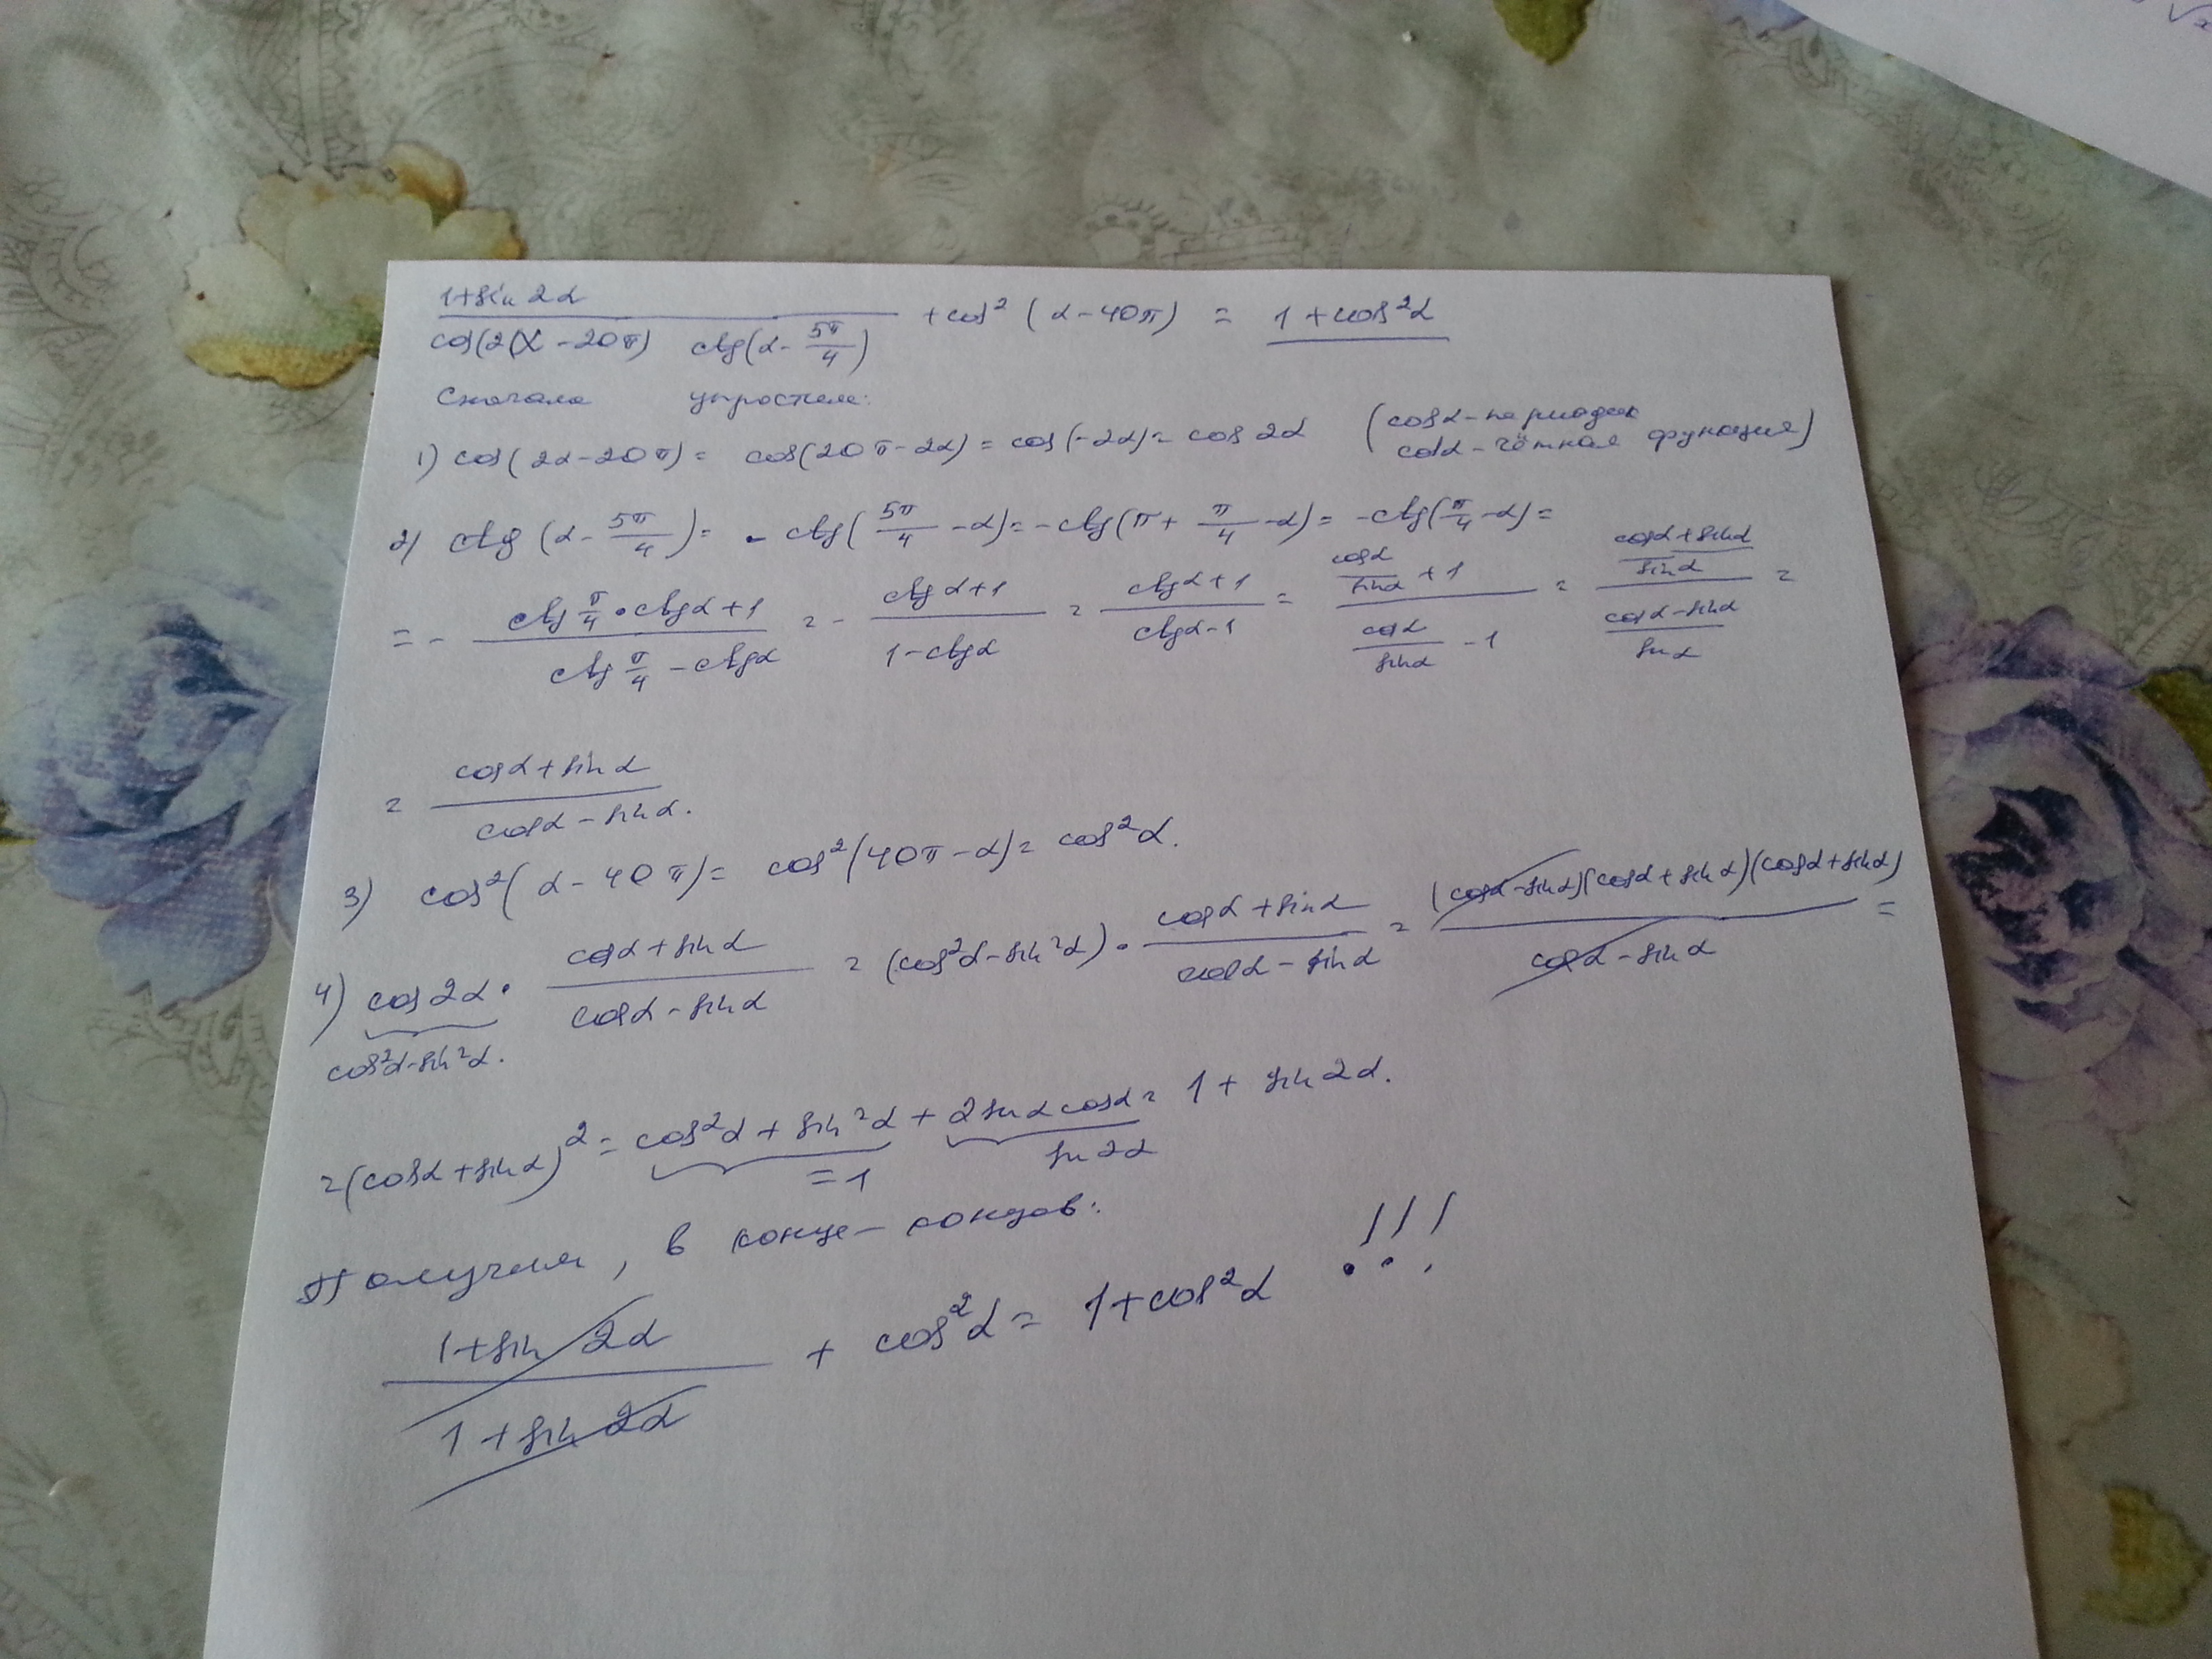 (1+sin 2α)/(cos(2α-20π) ctg(α-5π/4)) + cos²(α-40π) = 1+cos²α
Сначала упростим:
1) cos(2α-20π)= cos(20π-2α)= cos(-2α)= cos 2α (cosα-периодич
cosα-чётная функция)
2) ctg(α-5π/4)= -ctg(5π/4-α)= -ctg(π+π/4-α)= -ctg(π/4-α)=
= - (ctg π/4·ctgα+1)/(ctg π/4-ctgα) = - (ctgα+1)/(1-ctgα) = (ctgα+1)/(ctgα-1) = (cosα/sinα+1)/(cosα/sinα-1) = ((cosα+sinα)/sinα)/((cosα-sinα)/sinα) =
= (cosα+sinα)/(cosα-sinα).
3) cos²(α-40π)= cos²(40π-α)= cos²α.
4) cos2α·(cosα+sinα)/(cosα-sinα) = (cos²α-sin²α)·(cosα+sinα)/(cosα-sinα) = (cosα-sinα)(cosα+sinα)(cosα+sinα)/(cosα-sinα) =
cos²α-sin²α.
=(cosα+sinα)²= cos²α+sin²α+2sinαcosα= 1+sin2α.
=1 sin2α
Получим, в конце-концов:
(1+sin 2α)/(1+sin 2α) + cos²α= 1+cos²α !!!